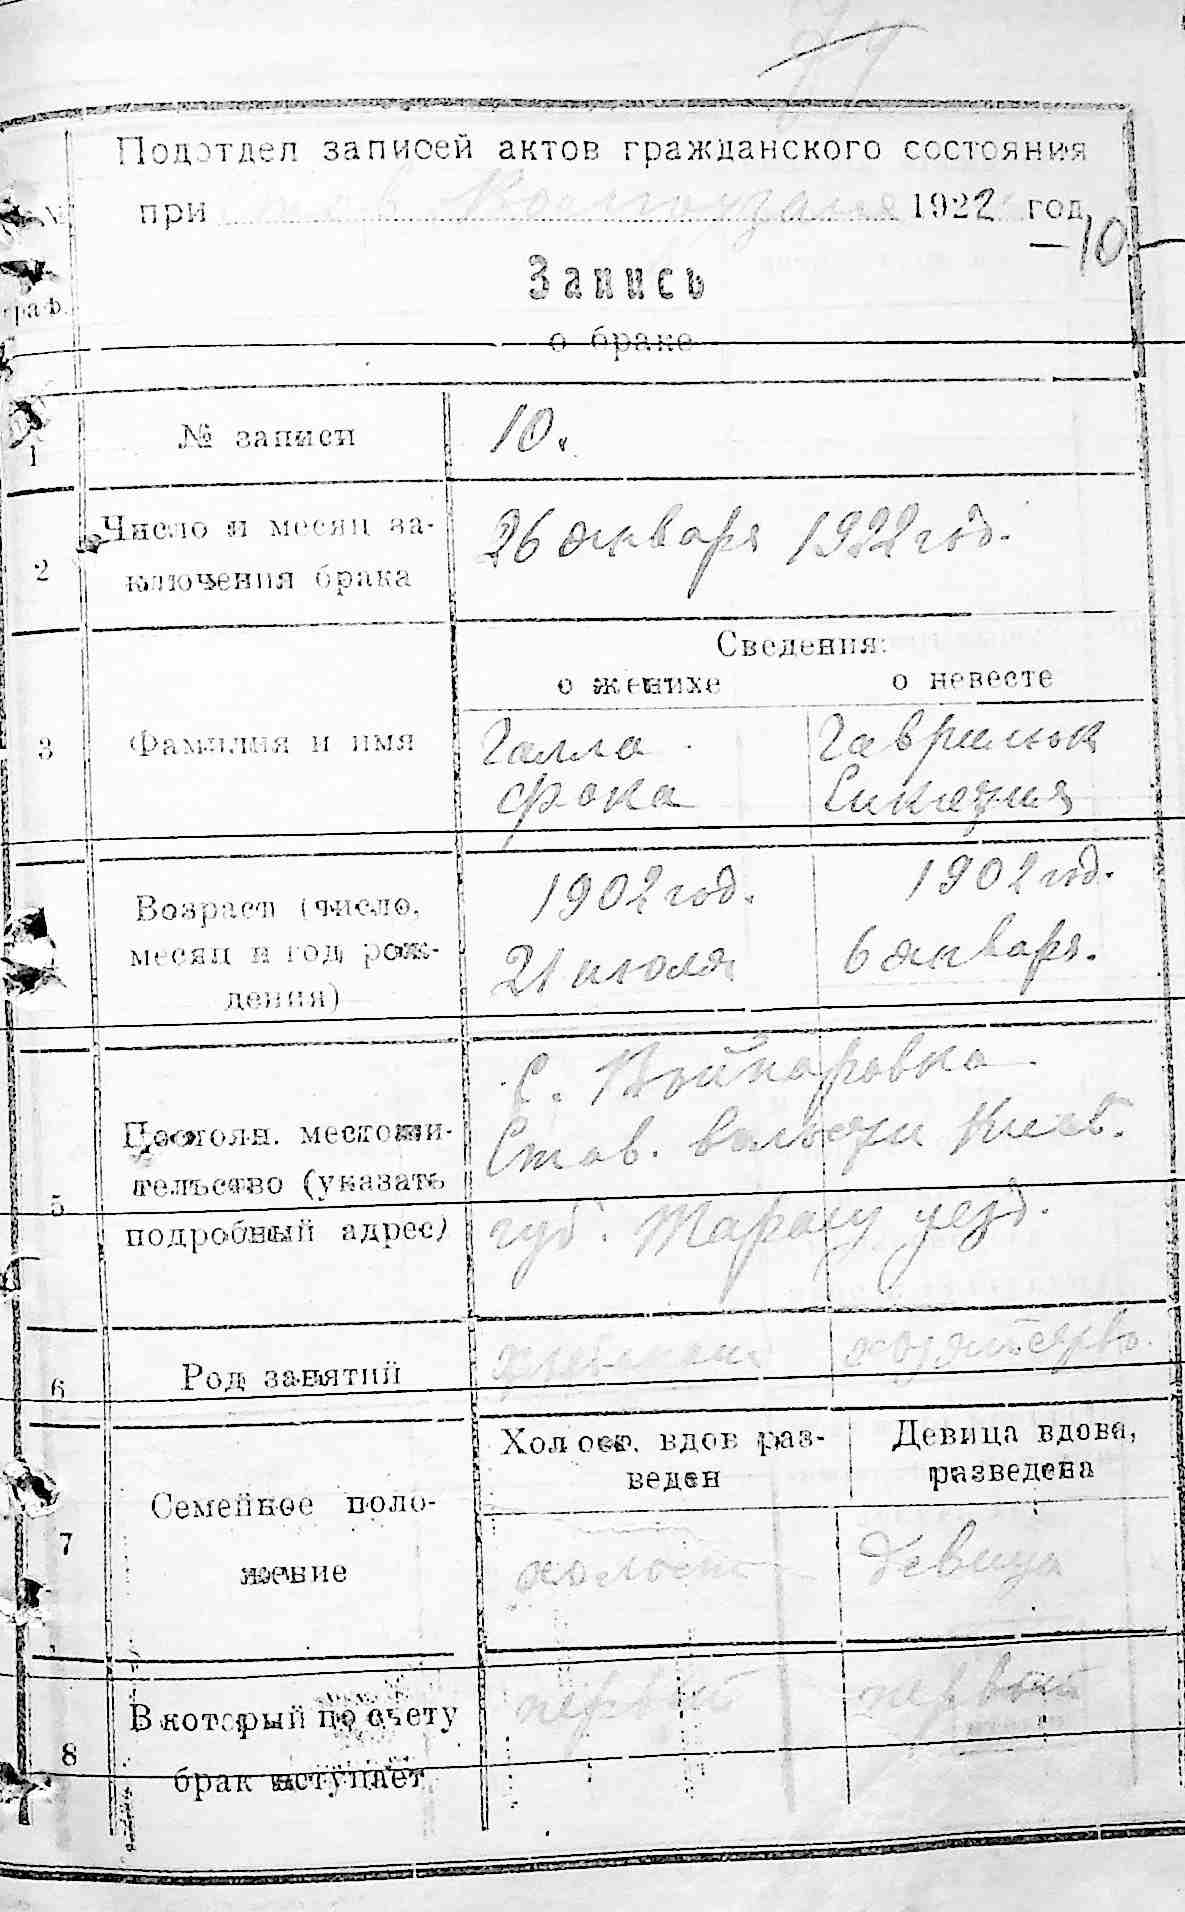 Подотдел записей актов гражданского состояния
при 1922 год
-10-
№
граф.
Запись
о браке
1 № записи 10.
2 Число и месяц за-
ключения брака 26 января 1922 год.
Сведения:
о женихе о невесте
3 Фамилия и имя Галла Гаврилюк
Фока
Возраст (число, 1902 год. 1902 год.
месяц и год рож- 21 июля 6 января.
дения)
С. Войнаровка
Постоян. местожи- Став. волости Киев.
5 тельство (указать
подробный адрес) губ. Таращ уезд.
6 Род занятий
Холост. вдов раз- Девица вдова,
веден разведена
7 Семейное поло-
жение холост девица
8 В который по счету первый первый
брак вступает